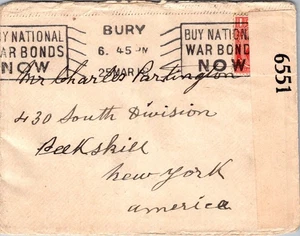 BUY NATIONAL
WAR BONDS
NOW
BURY
6. 45 PM
25 MAR
BUY NATION
WAR BOND
NOW
6551
Mr Charles Partington
430 South Division
Peekskill
New York
America